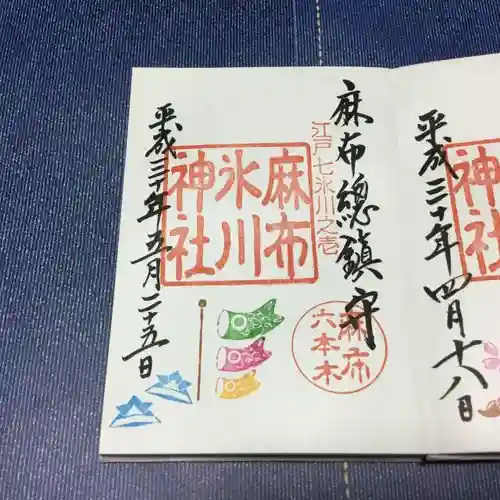 麻布總鎮守
江戸七氷川之壱
麻布
氷川
神社
麻布
六本木
平成三十年五月二十五日
神社
平成三十年四月十八日